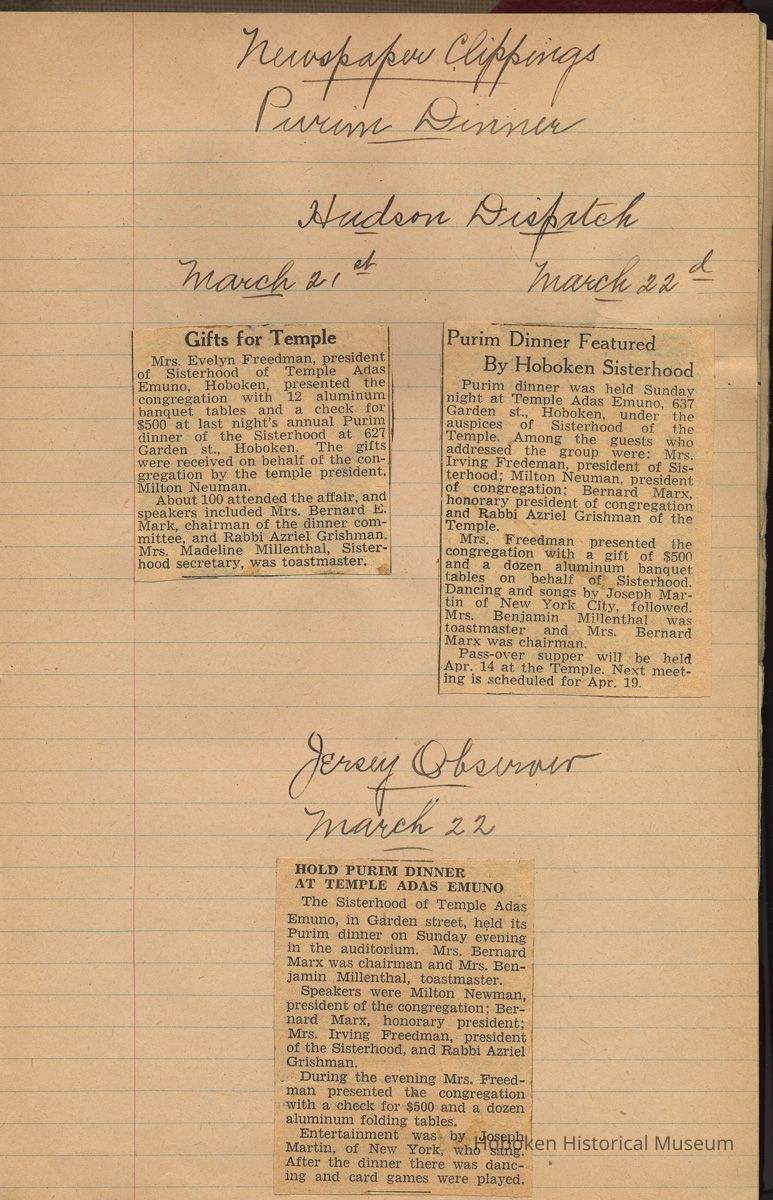 Newspaper Clippings
Purim Dinner
Hudson Dispatch
March 21st
March 22d
Gifts for Temple
Mrs. Evelyn Freedman, president
of Sisterhood of Temple Adas
Emuno, Hoboken, presented the
congregation with 12 aluminum
banquet tables and a check for
$500 at last night's annual Purim
dinner of the Sisterhood at 627
Garden st., Hoboken. The gifts
were received on behalf of the con-
gregation by the temple president,
Milton Neuman.
About 100 attended the affair, and
speakers included Mrs. Bernard E.
Mark, chairman of the dinner com-
mittee, and Rabbi Azriel Grishman.
Mrs. Madeline Millenthal, Sister-
hood secretary, was toastmaster.
Purim Dinner Featured
By Hoboken Sisterhood
Purim dinner was held Sunday
night at Temple Adas Emuno, 637
Garden st., Hoboken, under the
auspices of Sisterhood of the
Temple. Among the guests who
addressed the group were: Mrs.
Irving Fredeman, president of Sis-
terhood; Milton Neuman, president
of congregation; Bernard Marx,
honorary president of congregation
and Rabbi Azriel Grishman of the
Temple.
Mrs. Freedman presented the
congregation with a gift of $500
and a dozen aluminum banquet
tables on behalf of Sisterhood.
Dancing and songs by Joseph Mar-
tin of New York City, followed.
Mrs. Benjamin Millenthal was
toastmaster and Mrs. Bernard
Marx was chairman.
Pass-over supper will be held
Apr. 14 at the Temple. Next meet-
ing is scheduled for Apr. 19.
Jersey Observer
March 22
HOLD PURIM DINNER
AT TEMPLE ADAS EMUNO
The Sisterhood of Temple Adas
Emuno, in Garden street, held its
Purim dinner on Sunday evening
in the auditorium. Mrs. Bernard
Marx was chairman and Mrs. Ben-
jamin Millenthal, toastmaster.
Speakers were Milton Newman,
president of the congregation; Ber-
nard Marx, honorary president;
Mrs. Irving Freedman, president
of the Sisterhood, and Rabbi Azriel
Grishman.
During the evening Mrs. Freed-
man presented the congregation
with a check for $500 and a dozen
aluminum folding tables.
Entertainment was by Joseph
Martin, of New York, who sang.
After the dinner there was danc-
ing and card games were played.
Hoboken Historical Museum